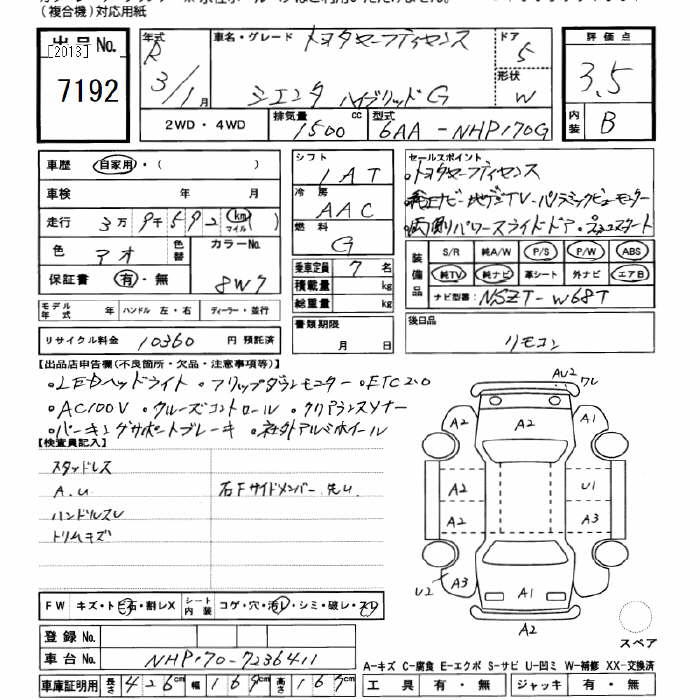 (複合機)対応用紙
出品No. [2013] 7192
年式 R 3/1月
車名・グレード トヨタセーフティセンス
シエンタ ハイブリッド G
ドア 5
形状 W
評価点 3.5
内装 B
2WD・4WD
排気量 1500 cc
型式 6AA-NHP170G
車歴 自家用・( )
車検 年 月
走行 3万9千592 (km マイル)
色 アオ 色替 カラーNo. 8W7
保証書 有・無
モデル年式 年 ハンドル 左・右 ディーラー・並行
リサイクル料金 10360 円 預託済
シフト 1AT
冷房 AAC
燃料 G
乗車定員 7 名
積載量 kg
総重量 kg
書類期限 月 日
セールスポイント
・トヨタセーフティセンス
・純正ナビ・地デジTV・パノラミックビューモニター
・両側パワースライドドア・プッシュスタート
装備品 S/R 純A/W P/S P/W ABS
純TV 純ナビ 革シート 外ナビ エアB
ナビ型番: NSZT-W68T
後日品 リモコン
【出品店申告欄(不良箇所・欠品・注意事項等)】
・LEDヘッドライト ・フリップダウンモニター ・ETC2.0
・AC100V ・クルーズコントロール ・クリアランスソナー
・パーキングサポートブレーキ ・社外アルミホイール
【検査員記入】
スタッドレス
A.U
右Fサイドメンバー 先U
ハンドルスレ
トリムキズ
AU2
ワレ
A2
A2
A1
A2
U1
A2
A3
U2
A3
A1
A2
スペア
FW キズ・トビ石・割レX
シート内装 コゲ・穴・汚レ・シミ・破レ・スレ
登録No.
車台No. NHP170-7236411
車庫証明用 長さ 426cm 幅 169cm 高さ 167cm
A-キズ C-腐食 E-エクボ S-サビ U-凹ミ W-補修 XX-交換済
工具 有・無 ジャッキ 有・無